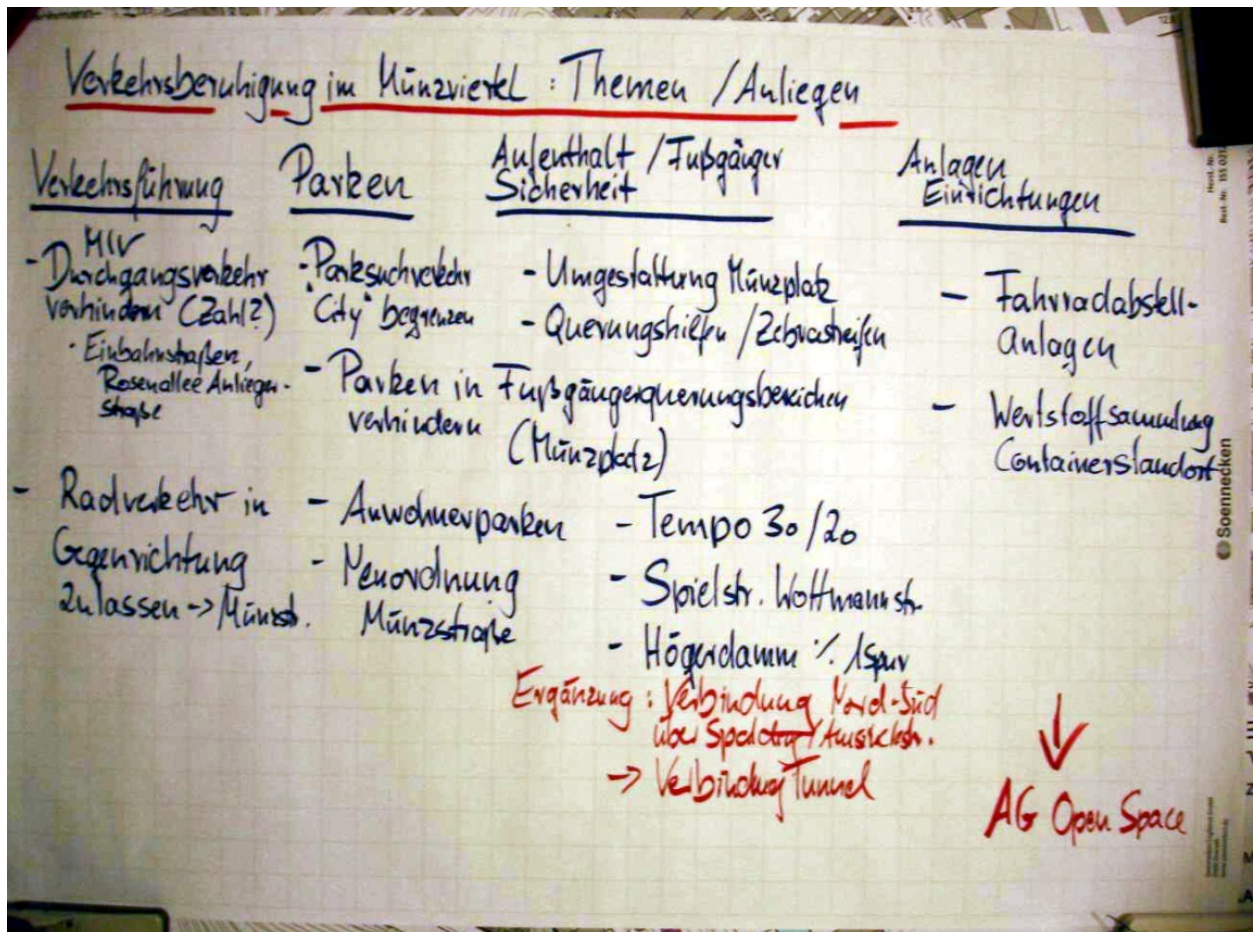 Verkehrsberuhigung im Münzviertel : Themen / Anliegen
Verkehrsführung
MIV
- Durchgangsverkehr
verhindern (Zahl?)
· Einbahnstraßen,
Rosenallee Anlieger-
straße
- Radverkehr in
Gegenrichtung
zulassen -> Münzstr.
Parken
- Parksuchverkehr
"City" begrenzen
- Parken in Fußgängerquerungsbereichen
verhindern
(Münzplatz)
- Anwohnerparken
- Neuordnung
Münzstraße
Aufenthalt / Fußgänger
Sicherheit
- Umgestaltung Münzplatz
- Querungshilfen / Zebrastreifen
- Tempo 30/20
- Spielstr. Woltmannstr.
- Högerdamm ·/. 1 Spur
Ergänzung : Verbindung Nord-Süd
über
-> Verbindung Tunnel
Anlagen
Einrichtungen
- Fahrradabstell-
anlagen
- Wertstoffsammlung
Containerstandort
↓
AG Open Space
Soennecken